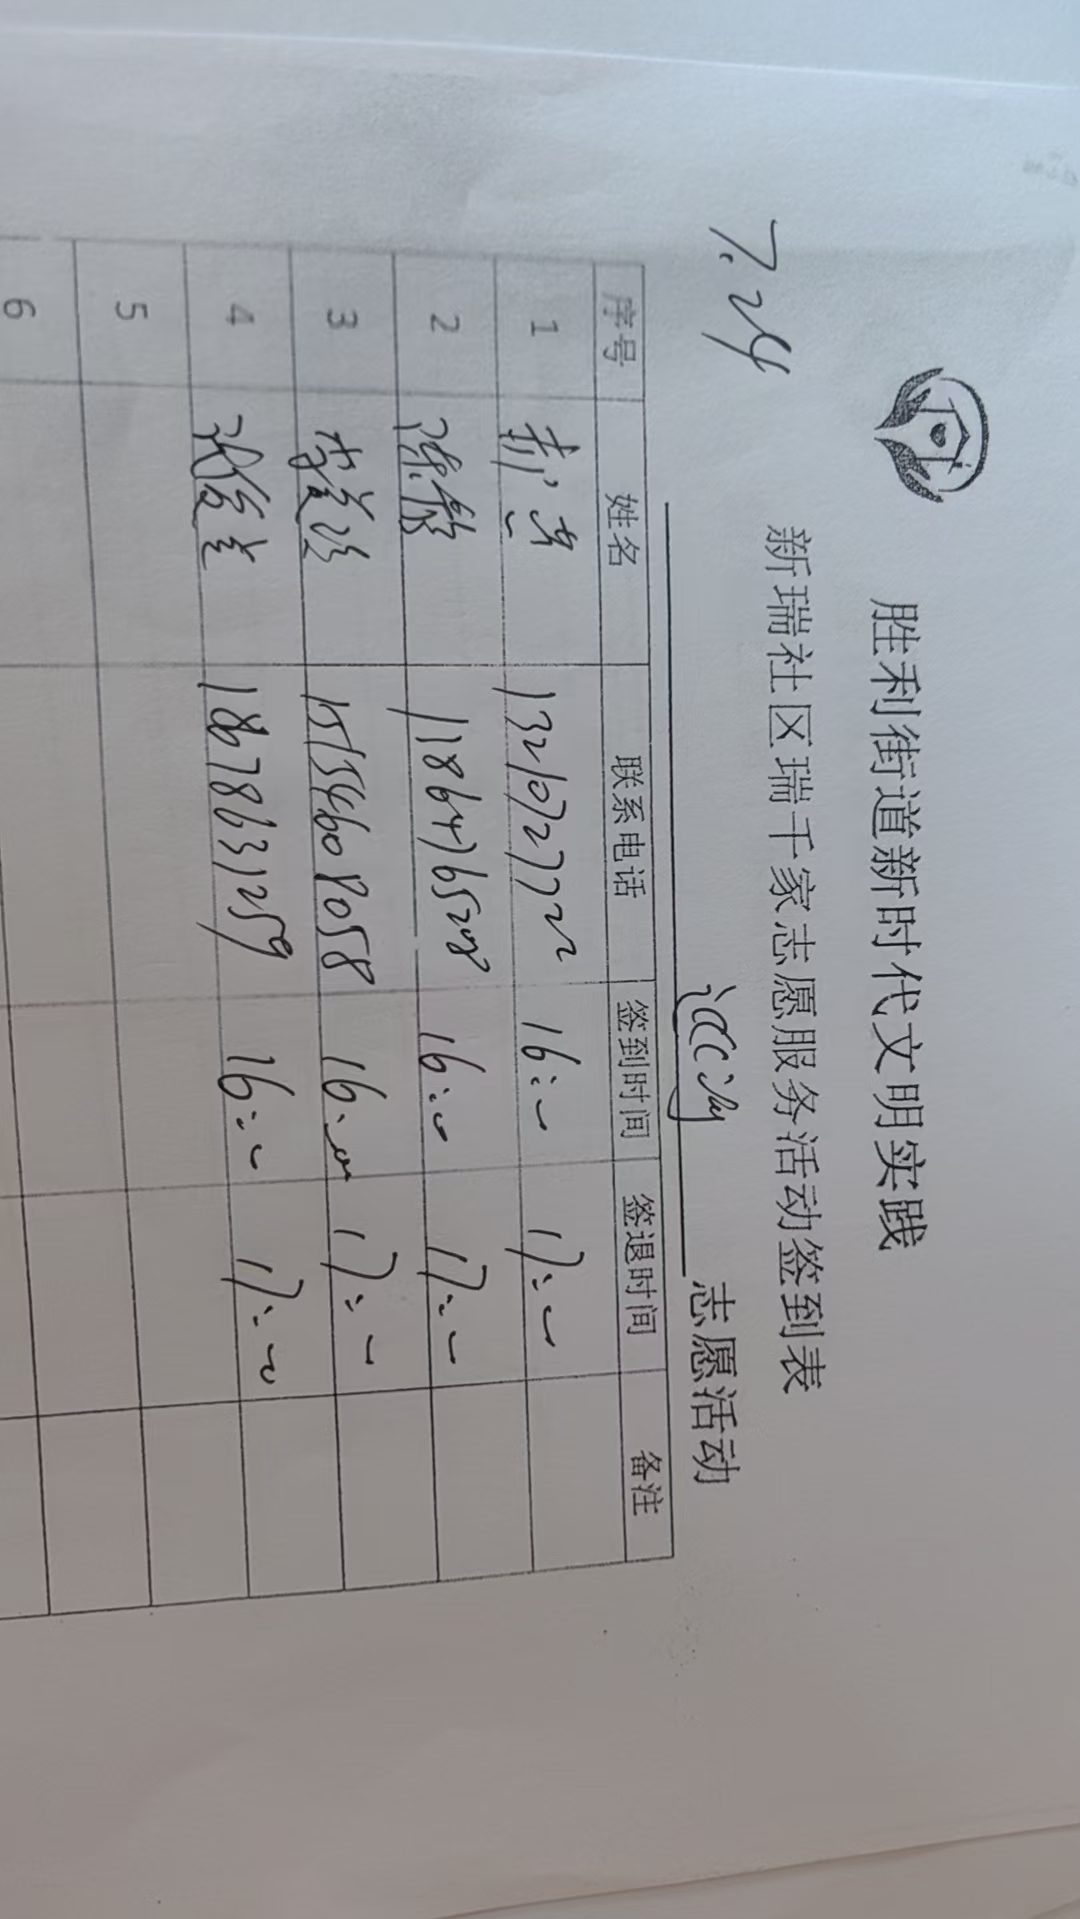 胜利街道新时代文明实践
新瑞社区瑞千家志愿服务活动签到表
7.24
志愿活动
序号 姓名 联系电话 签到时间 签退时间 备注
1 13210727722 16:00 17:00
2 陈敏 16:00 17:00
3 15154608058 16:00 17:00
4 18678631259 16:00 17:00
5
6